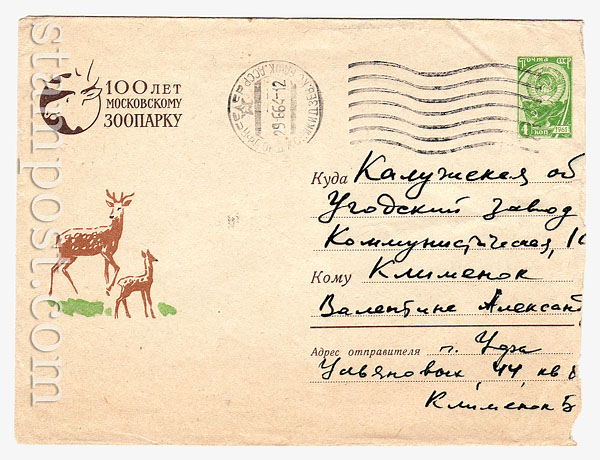 100 ЛЕТ
МОСКОВСКОМУ
ЗООПАРКУ
ПОЧТА СССР
4
КОП
1961
29-6 64-12
Куда Калужская об
Угодский завод
Коммунистическая, 1
Кому Клименок
Валентине Алексан
Адрес отправителя г. Уфа
Ульяновых 44, кв 8
Клименок Б
stampost.com